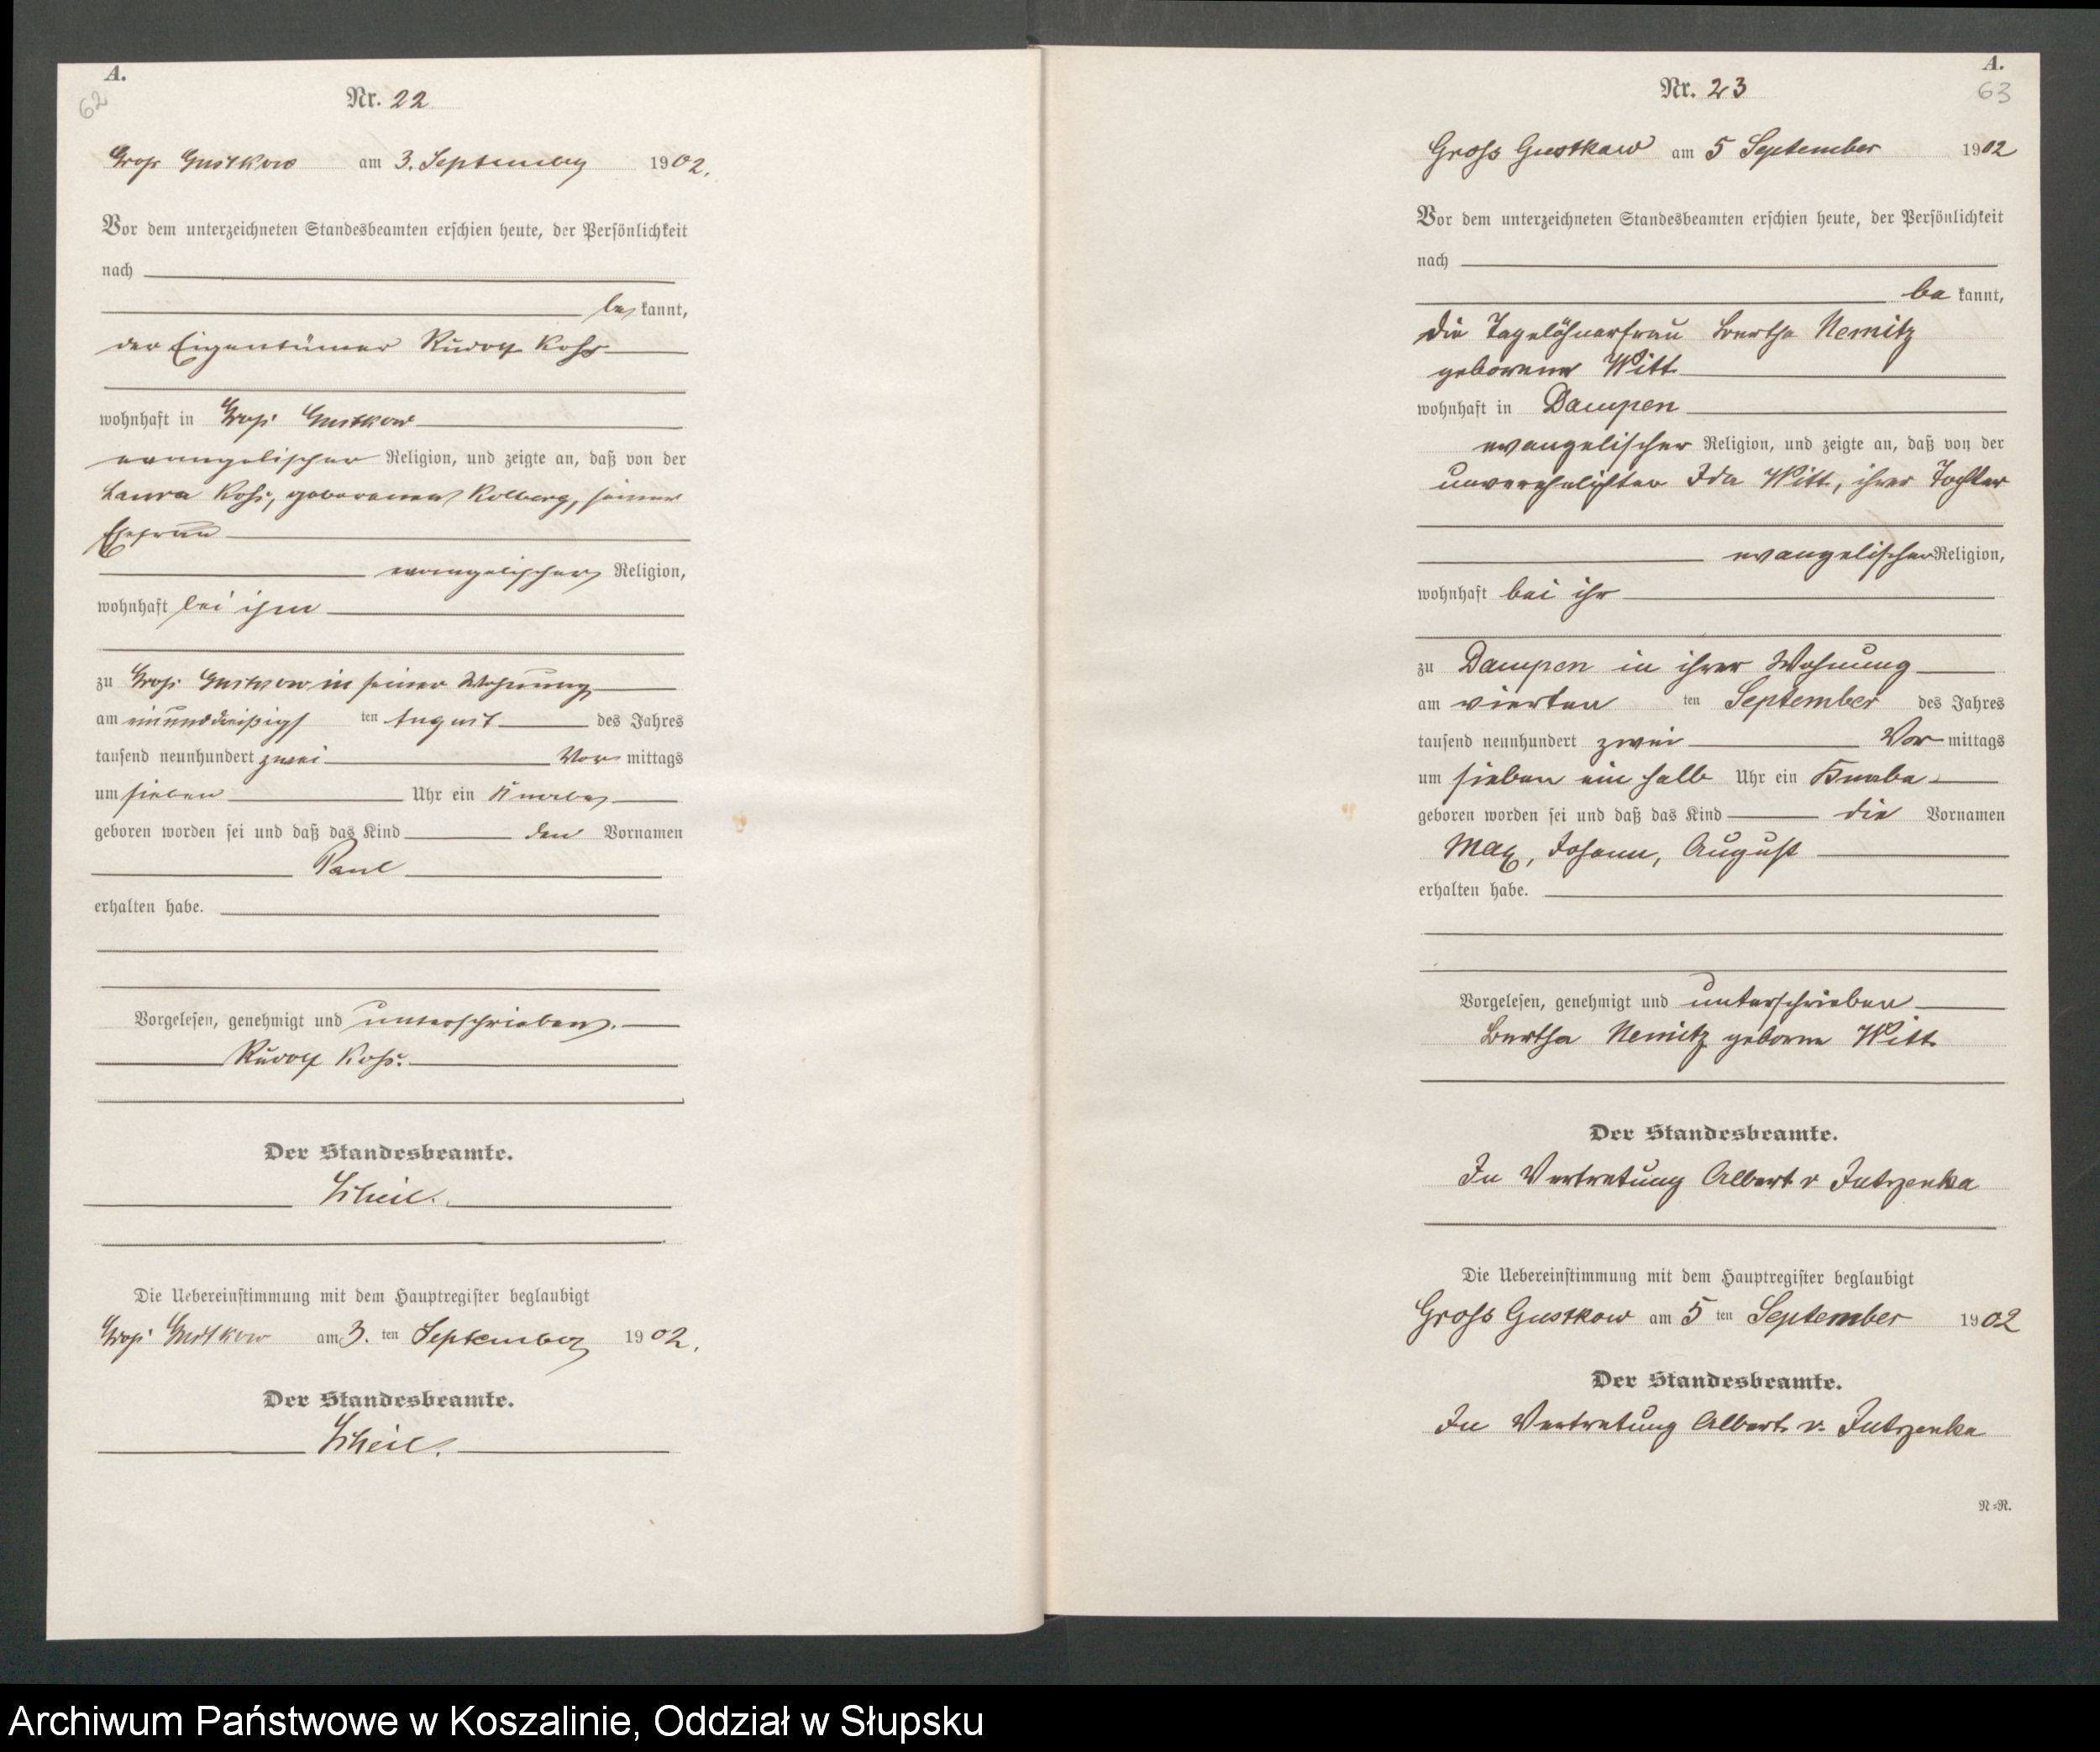 A.
62
Nr. 22
Groß Gustkow am 3. September 1902.
Vor dem unterzeichneten Standesbeamten erschien heute, der Persönlichkeit
nach
be kannt,
der Eigentümer Rudolf Koß
wohnhaft in Groß Gustkow
evangelischer Religion, und zeigte an, daß von der
Laura Koß, geborenen Kolberg, seiner
Ehefrau
evangelischer Religion,
wohnhaft bei ihm
zu Groß Gustkow in seiner Wohnung
am einunddreißigs ten August des Jahres
tausend neunhundert zwei Vor mittags
um sieben Uhr ein Knabe
geboren worden sei und daß das Kind den Vornamen
Paul
erhalten habe.
Vorgelesen, genehmigt und unterschrieben.
Rudolf Koß.
Der Standesbeamte.
Scheil.
Die Uebereinstimmung mit dem Hauptregister beglaubigt
Groß Gustkow am 3. ten September 1902.
Der Standesbeamte.
Scheil.
A.
63
Nr. 23
Gross Gustkow am 5 September 1902
Vor dem unterzeichneten Standesbeamten erschien heute, der Persönlichkeit
nach
be kannt,
die Tagelöhnerfrau Bertha Nemitz
geborene Witt
wohnhaft in Dampen
evangelischer Religion, und zeigte an, daß von der
unverehelichten Ida Witt, ihrer Tochter
evangelischer Religion,
wohnhaft bei ihr
zu Dampen in ihrer Wohnung
am vierten ten September des Jahres
tausend neunhundert zwei Vor mittags
um sieben ein halb Uhr ein Knabe
geboren worden sei und daß das Kind die Vornamen
Max, Johann, August
erhalten habe.
Vorgelesen, genehmigt und unterschrieben
Bertha Nemitz geborne Witt
Der Standesbeamte.
In Vertretung Albert v Jutrzenka
Die Uebereinstimmung mit dem Hauptregister beglaubigt
Gross Gustkow am 5 ten September 1902
Der Standesbeamte.
In Vertretung Albert v. Jutrzenka
N=R.
Archiwum Państwowe w Koszalinie, Oddział w Słupsku